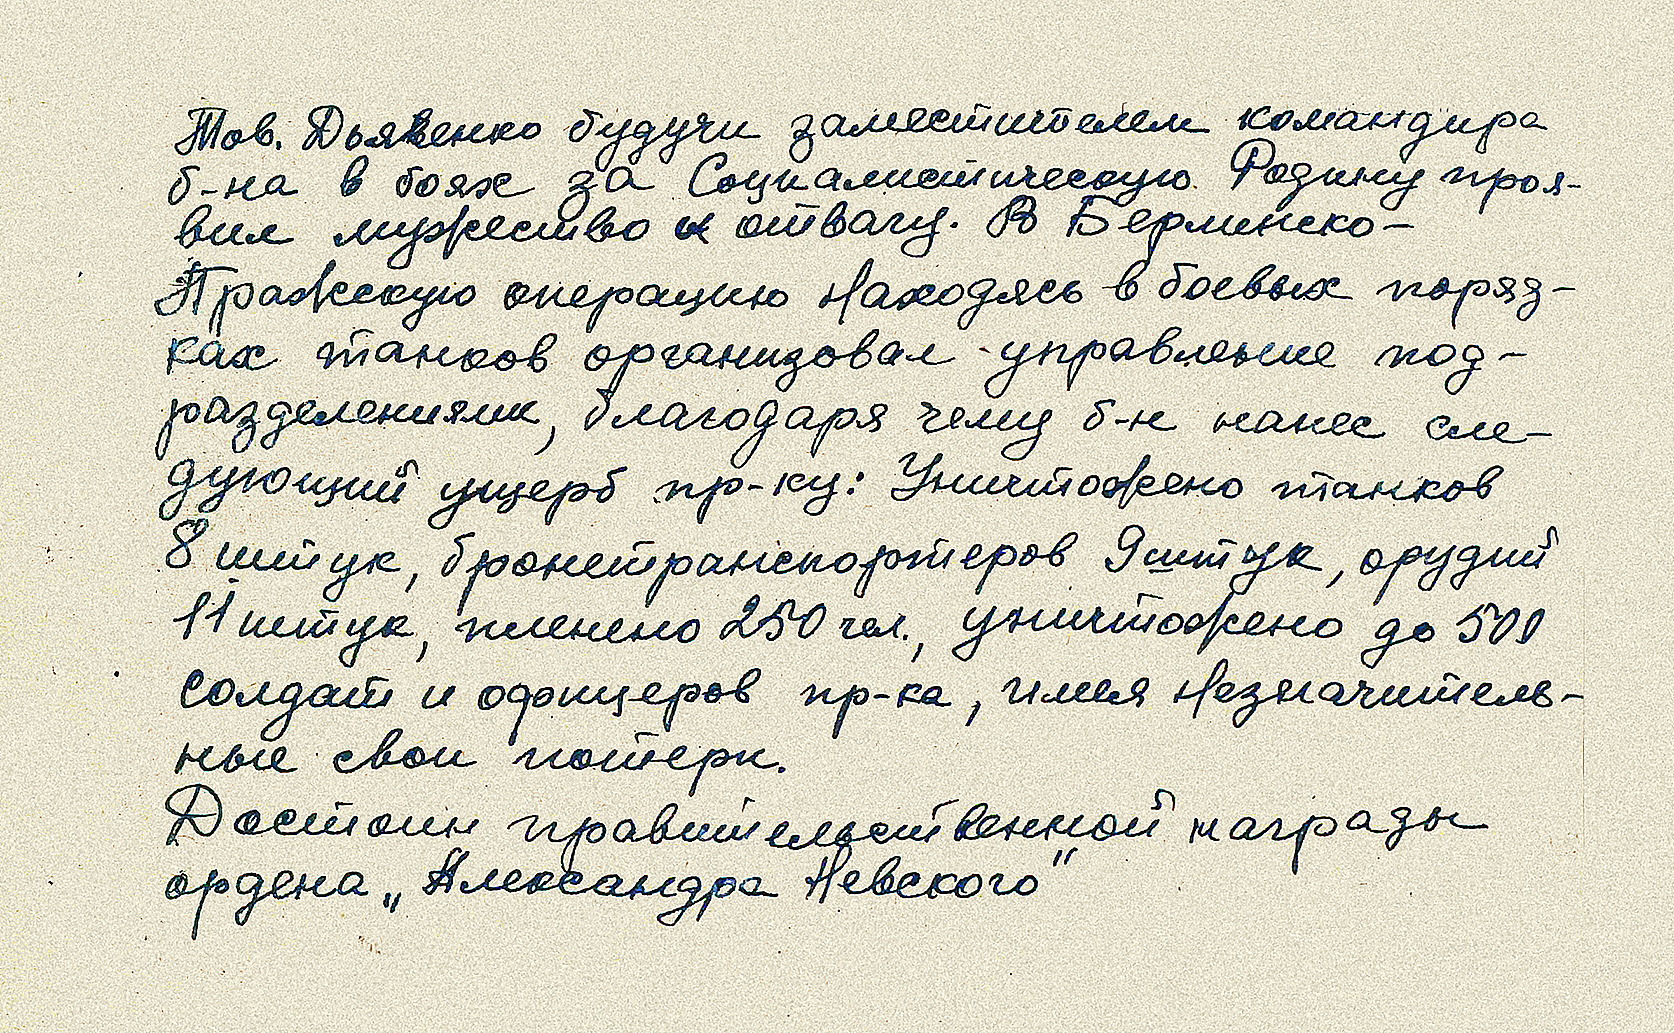 Тов. Дьяченко будучи заместителем командира
б-на в боях за Социалистическую Родину проя-
вил мужество и отвагу. В Берлинско-
Пражскую операцию находясь в боевых поряд-
ках танков организовал управление под-
разделениями, благодаря чему б-н нанес сле-
дующий ущерб пр-ку: Уничтожено танков
8 штук, бронетранспортеров 9 штук, орудий
11 штук, пленено 250 чел., уничтожено до 500
солдат и офицеров пр-ка, имея незначитель-
ные свои потери.
Достоин правительственной награды
ордена „Александра Невского"